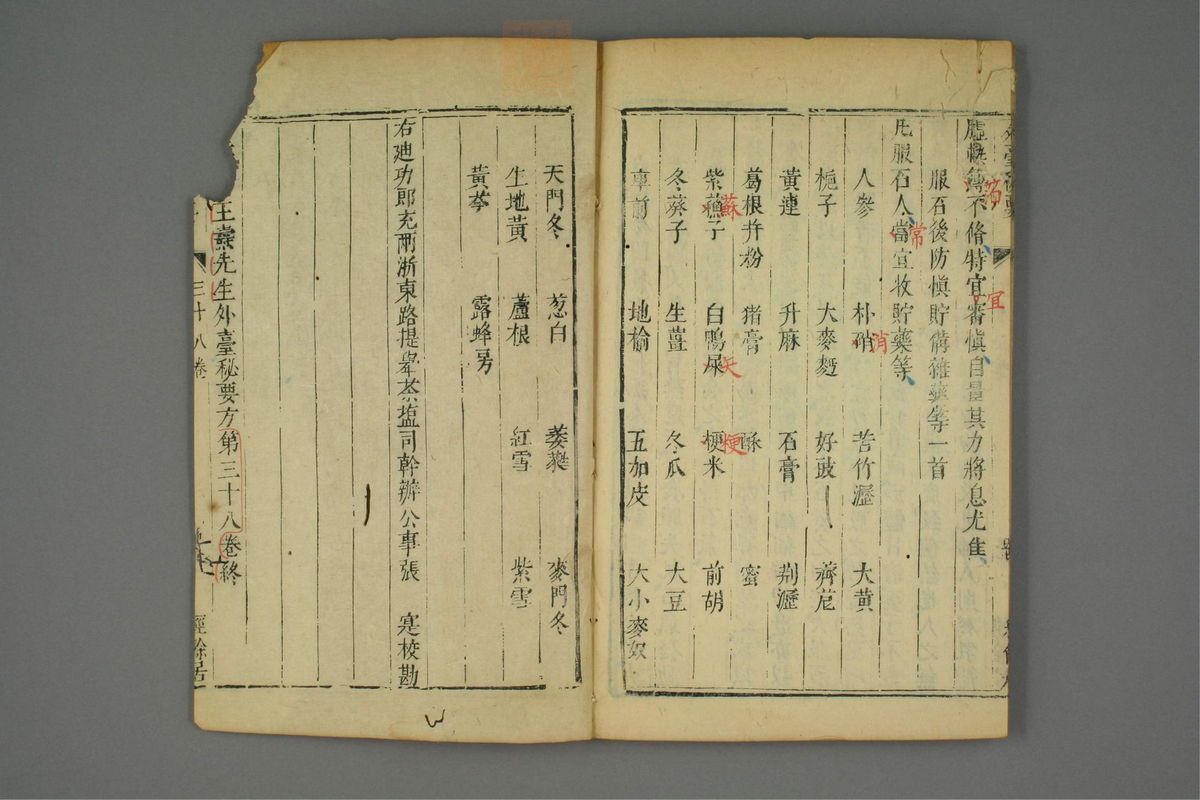 虛憊薄不脩特宜審慎自量其力將息尤佳
服石後防慎貯備雜藥等一首
凡服石人當宜收貯藥等
人參 朴硝 苦竹瀝 大黃
梔子 大麥麪 好豉 薺苨
黃連 升麻 石膏 荆瀝
葛根并粉 猪膏 酥 蜜
紫蘓子 白鴨屎 梗米 前胡
冬葵子 生薑 冬瓜 大豆
車前 地榆 五加皮 大小麥奴
蒻
宜
常
消
蘇
矢
粳
天門冬 葱白 萎蕤 麥門冬
生地黃 蘆根 紅雪 紫雪
黃芩 露蜂房
右迪功郎充兩浙東路提舉茶塩司幹辦公事張 寔校勘
王燾先生外臺秘要方第三十八卷終
三十八卷
經餘居